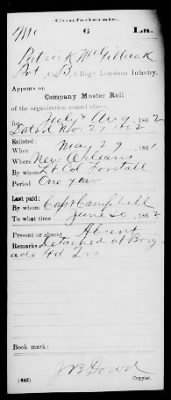 Confederate.
6 La.
Patrick McGillick
Pvt, Co. B, 6 Reg't Louisiana Infantry.
Appears on
Company Muster Roll
of the organization named above,
for July & Aug, 1862
Dated Nov. 27 1862
Enlisted:
When May 29, 1861.
Where New Orleans
By whom Lt. Col. Forstall
Period One year
Last paid:
By whom Capt Campbell
To what time June 30, 1862
Present or absent Absent
Remarks detached at Brig
ade Hd Qrs
Book mark:
J B Dowd
(642) Copyist.